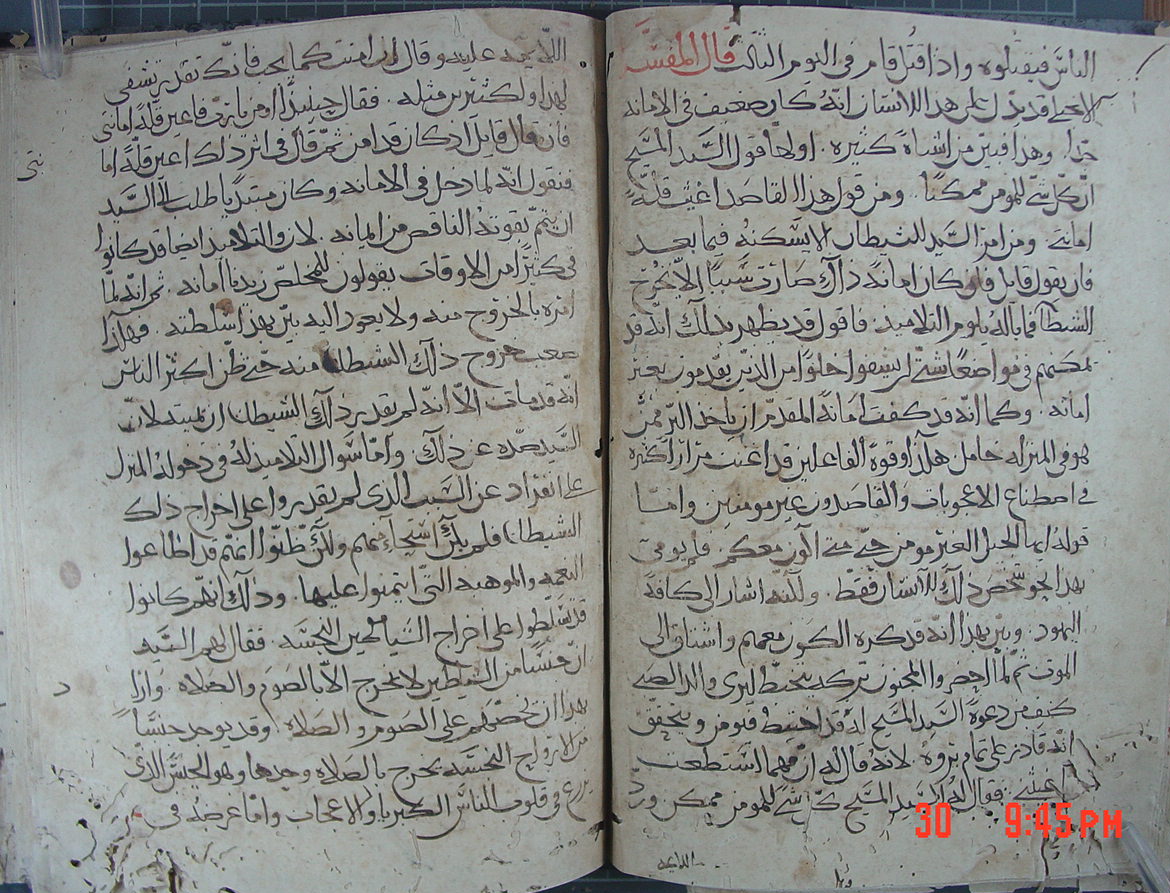 الناس فيقتلوه واذا قتل قام في اليوم الثالث قال المفسر
الانجيلي قد يدل على هذا الانسان انه كان ضعيف في الامانه
جدا. وهذا فبين من اشياء كثيره. اولها قول السيد المسيح
ان كل شي للمومن ممكنا. ومن قول هذا القاصد اغث قلة
امانتي ومن امر السيد للشيطان الا يسكنه فيما بعد
فان يقول قايل فان كان امانة ذاك صارت سببا الا يخرج
الشيطان فما باله يلوم التلاميد. فاقول قد يظهر بذلك انه قد
يمكنهم في مواضعا شتى ان يشفوا خلوا من الذين يقدمون بغير
امانه. وكما انه قد كفت امانة المقدم ان ياخذ البر ممن
هو في المنزله خامل هكذا وقوة الفاعلين قد اغنت مرارا كثيره
في اصطناع الاعجوبات والقاصدون غير مومنين واما
قوله ايها الجيل الغير مومن حتى متى اكون معكم. فلم يومي
بهذا نحو شخص ذلك الانسان فقط. ولكنه اشار الى كافة
اليهود. وبين بهذا انه قد كره الكون معهم واشتاق الى
الموت ثم لما احضر المجنون تركه يتخبط ليرى والد الصبي
كيف من دعوة السيد المسيح له قد اختبط فيومن ويتحقق
انه قادر على تمام بروه لانه قال له ان مهما استطعت
اعني فقال له السيد المسيح كل شي للمومن ممكن ورد
اللايمه
30 9:45 PM
اللايمه عليه وقال ان امنت كما يجب فانك تقدر تشفي
لهذا ولكثيرين مثله. فقال حينيذا اومن يا رب فاعين قلة امانتي
فان قال قايل ان كان قد امن ثم قال في اثر ذلك اعين قلة اما
نتي
فنقول انه لما دخل في الامانه وكان مبتديا طلب الى السيد
ان يتم بقوته الناقص من ايمانه. لان والتلاميد ايضا قد كانوا
في كثيرا من الاوقات يقولون للمخلص زيدنا امانه. ثم انه لما
امره بالخروج منه ولا يعود اليه بين بهذا سلطته. فهكذا
صعب خروج ذلك الشيطان منه حتى ظن اكثر الناس
انه قد مات الا انه لم يقدر ذلك الشيطان ان يميته لان
السيد صده عن ذلك. واما سوال التلاميد له في دخوله المنزل
على انفراد عن السبب الذي لم يقدروا على اخراج ذلك
الشيطان فلم يكن استحياء منهم ولكن ظنوا انهم قد اضاعوا
النعمه والموهبه التي ايتمنوا عليها. وذلك انهم كانوا
قد تسلطوا على اخراج الشياطين النجسه. فقال لهم السيد
ان جنسا من الشياطين لا يخرج الا بالصوم والصلاه. وارا
د
بهذا ان يحضهم على الصوم والصلاه. وقد يوجد جنسا
من الارواح النجسه يخرج بالصلاه وحدها وهو الجنس الذي
يزرع في قلوب الناس الكبريا والاعجاب واما غرضه في